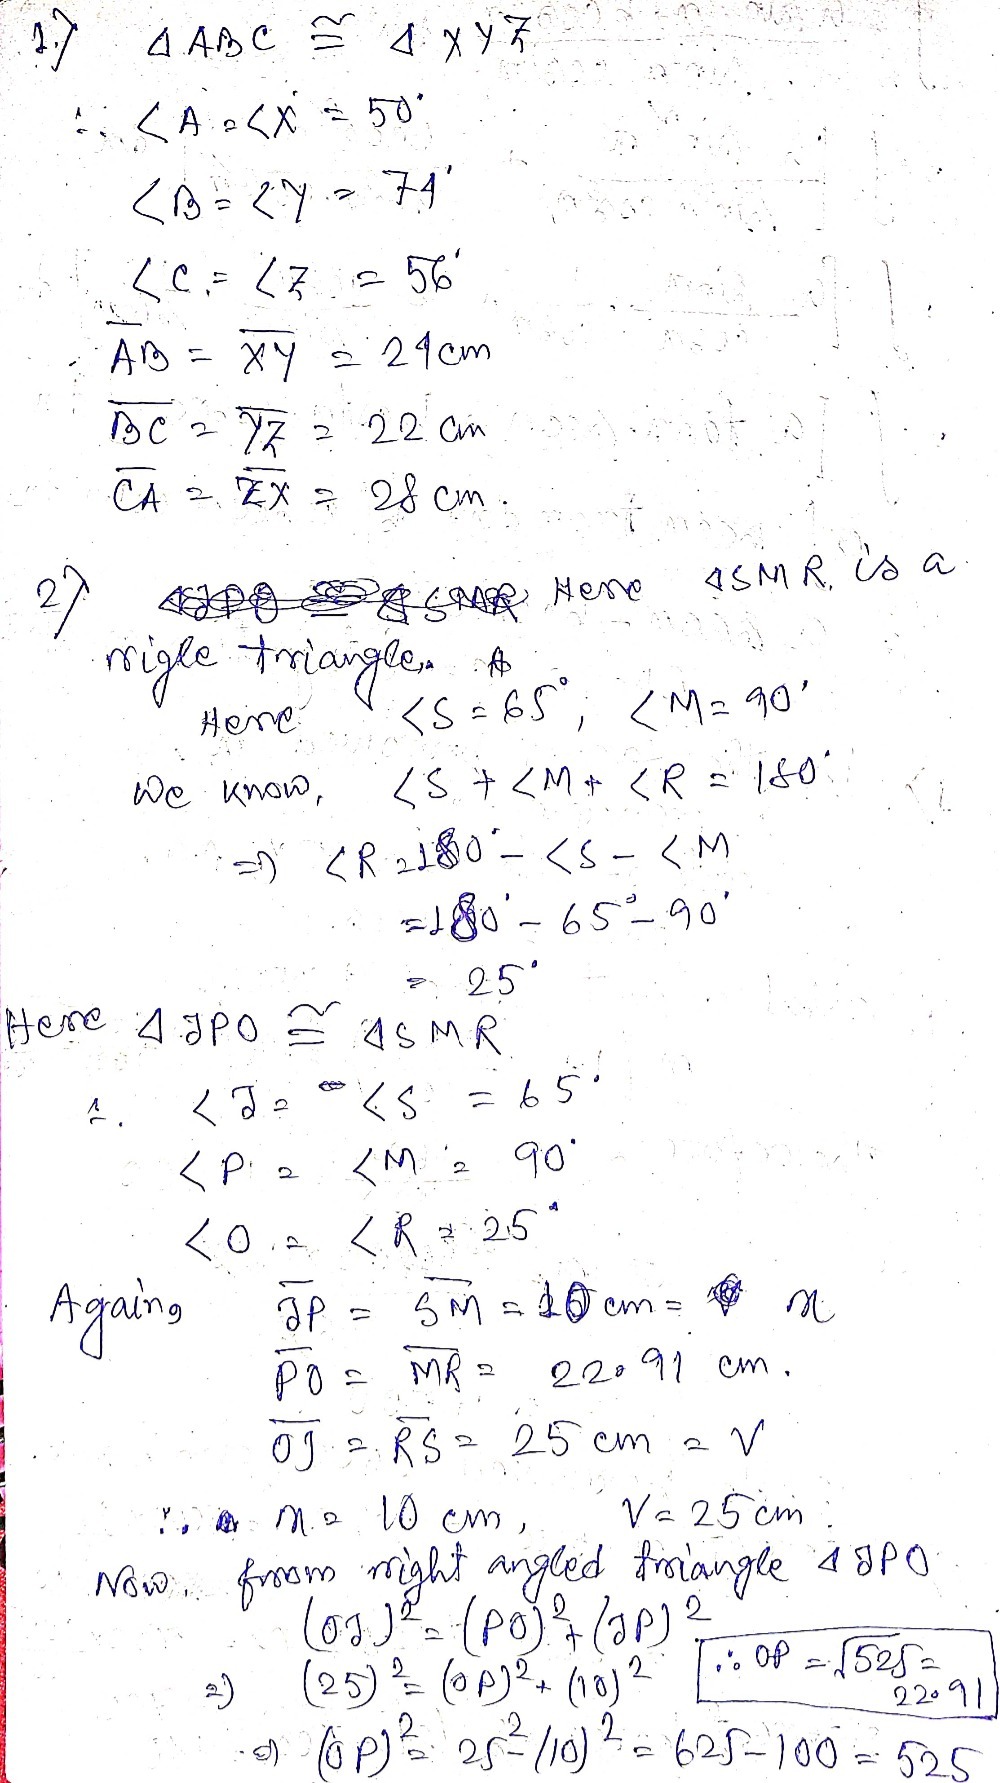 1.) Δ ABC ≅ Δ XYZ
∴ <A = <X = 50°
<B = <Y = 74°
<C = <Z = 56°
A̅B̅ = X̅Y̅ = 24cm
B̅C̅ = Y̅Z̅ = 22 cm
C̅A̅ = Z̅X̅ = 28 cm.
2) Here ΔSMR is a
rigle triangle.
Here <S = 65°, <M = 90°
We know, <S + <M + <R = 180°
=> <R = 180° - <S - <M
= 180° - 65° - 90°
= 25°
Here Δ JPO ≅ ΔSMR
∴ <J = <S = 65°
<P = <M = 90°
<O = <R = 25°
Again, J̅P̅ = S̅M̅ = 10 cm = x
P̅O̅ = M̅R̅ = 22.91 cm.
O̅J̅ = R̅S̅ = 25 cm = V
∴ x = 10 cm, V = 25 cm.
Now. from right angled triangle Δ JPO
(OJ)² = (PO)² + (JP)²
=> (25)² = (OP)² + (10)²
∴ OP = √525 =
22.91
=> (OP)² = 25² - (10)² = 625 - 100 = 525